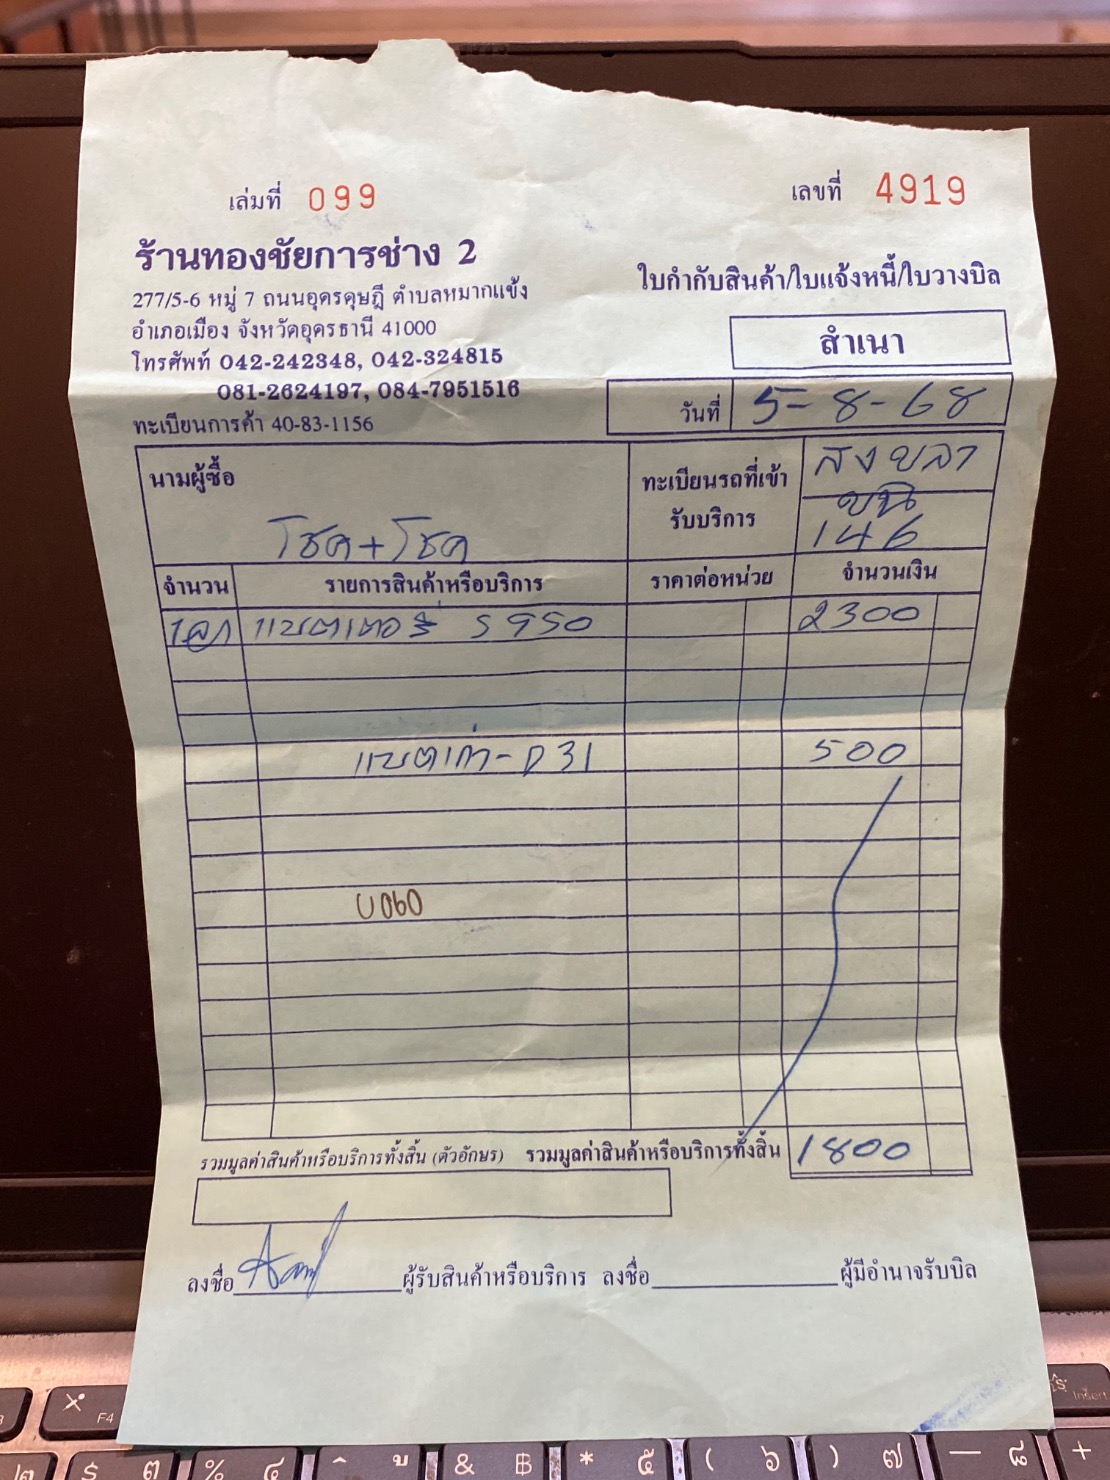 เล่มที่ 099
เลขที่ 4919
ร้านทองชัยการช่าง 2
277/5-6 หมู่ 7 ถนนอุดรดุษฎี ตำบลหมากแข้ง
อำเภอเมือง จังหวัดอุดรธานี 41000
โทรศัพท์ 042-242348, 042-324815
081-2624197, 084-7951516
ทะเบียนการค้า 40-83-1156
ใบกำกับสินค้า/ใบแจ้งหนี้/ใบวางบิล
สำเนา
วันที่ 5-8-68
นามผู้ซื้อ
โชค+โชค
ทะเบียนรถที่เข้า
รับบริการ
สงขลา
146
จำนวน รายการสินค้าหรือบริการ ราคาต่อหน่วย จำนวนเงิน
1ลูก แบตเตอรี่ S950 2300
แบตเก่า-D31 500
U060
รวมมูลค่าสินค้าหรือบริการทั้งสิ้น (ตัวอักษร) รวมมูลค่าสินค้าหรือบริการทั้งสิ้น 1800
ลงชื่อ ผู้รับสินค้าหรือบริการ ลงชื่อ ผู้มีอำนาจรับบิล
F4
Insert
๒ $ ๓ % ๔ ^ ู & ฿ * ๕ ( ๖ ) ๗ — ๘ +